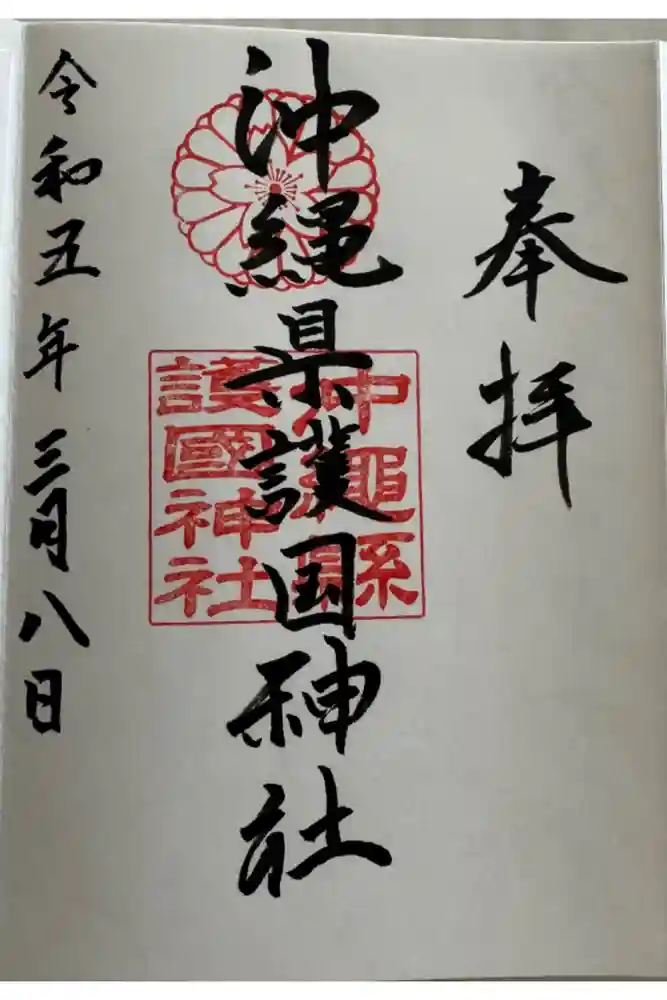 奉拝
沖縄県護国神社
沖縄縣
護國神社
令和五年三月八日